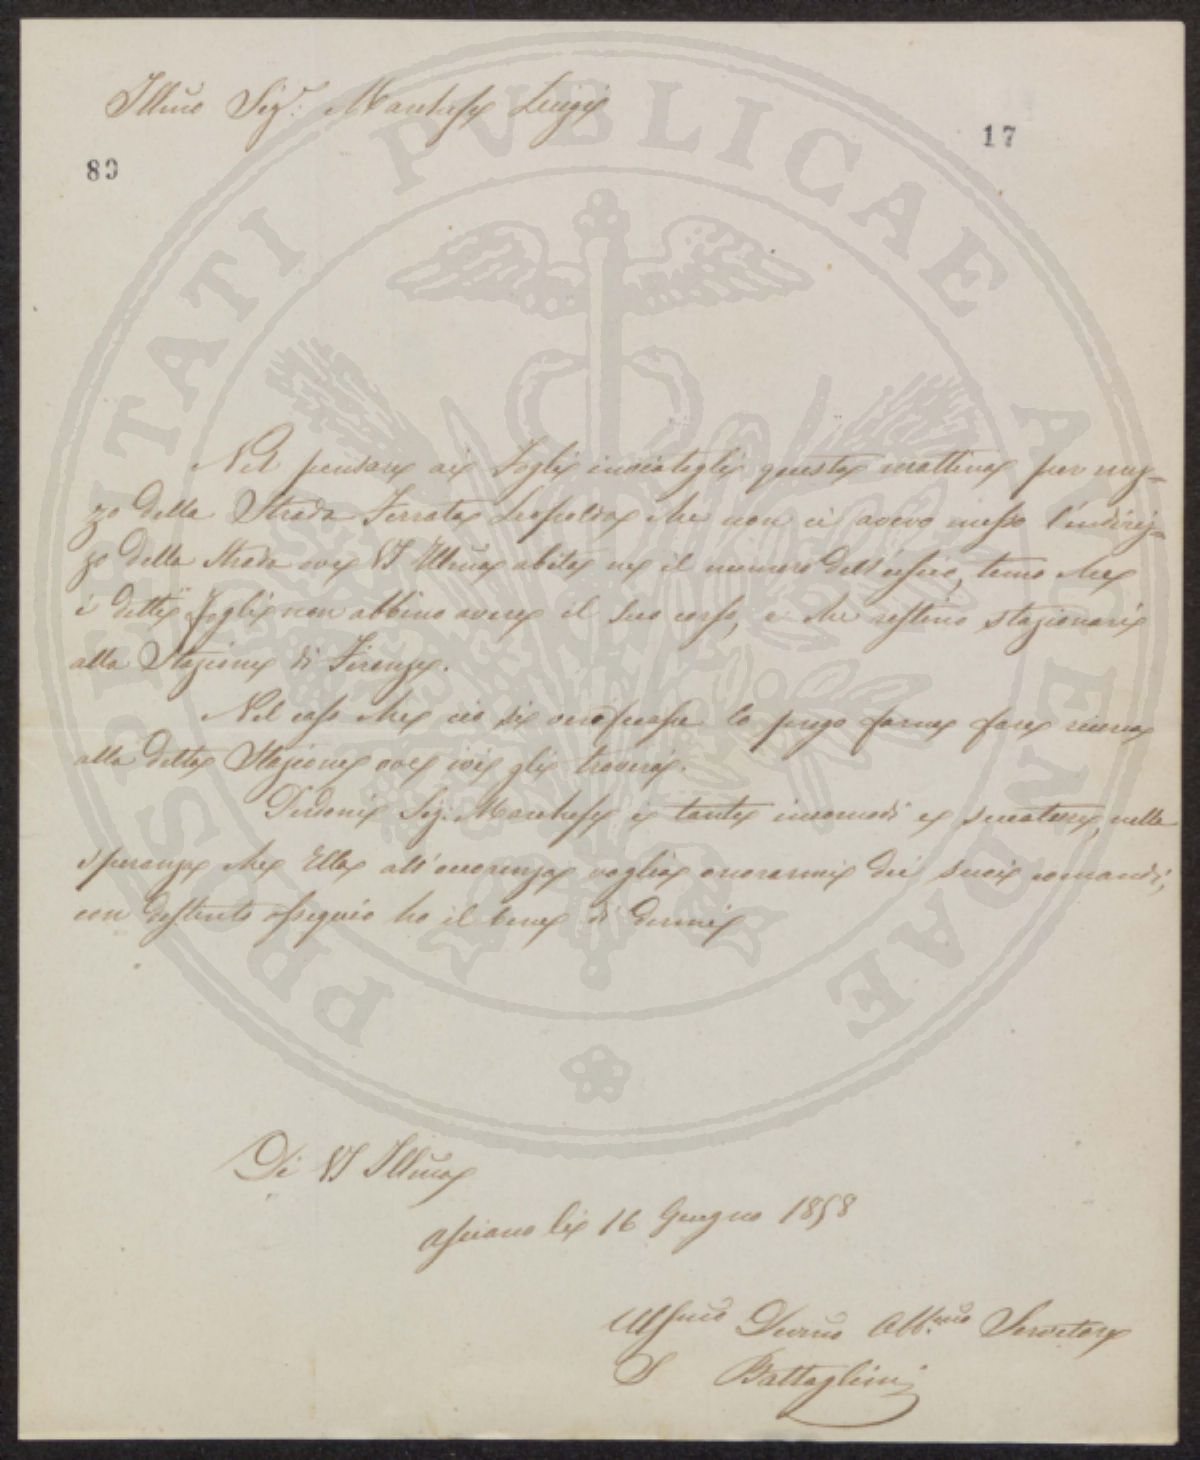 Illmo Sigr. Marchese Luigi
17
80
Nel pensare ai Fogli inviategli questa mattina per mez-
zo della Strada Ferrata Leopolda che non ci avevo messo l'indiriz-
zo della strada ove VS Illma abita ne il numero dell'uscio, temo che
i detti Fogli non abbino avere il suo corso, e che restino stazionari
alla Stazione di Firenze.
Nel caso che ciò si verificasse la prego farne fare ricerca
alla detta Stazione ove ivi gli troverà.
Perdoni Sig: Marchese i tanti incomodi e seccature, nella
speranza che Ella all'occorenza voglia onorarmi dei suoi comandi,
con distinto ossequio ho il bene di dirmi
Di VS Illma
Asciano li 16 Giugno 1858
Umo Devmo Obbmo Servitore
S Battaglini
PROSPERITATI PVBLICAE AVGENDAE